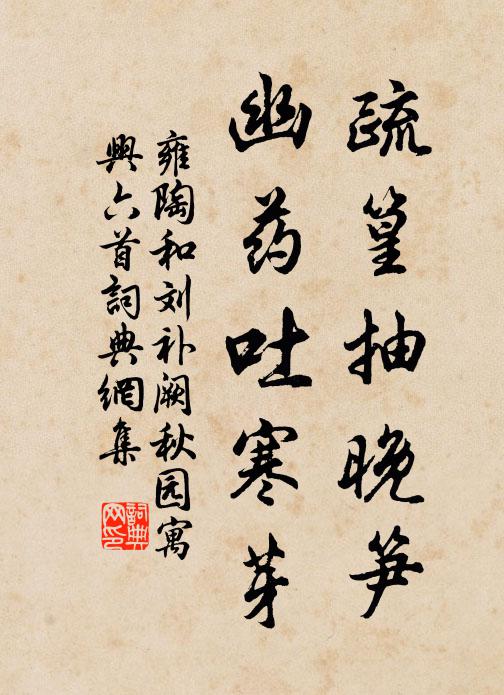 疏篁抽晚笋
幽药吐寒芽
雍陶和刘补阙秋园寓
興六首詞典網集
詞典网印